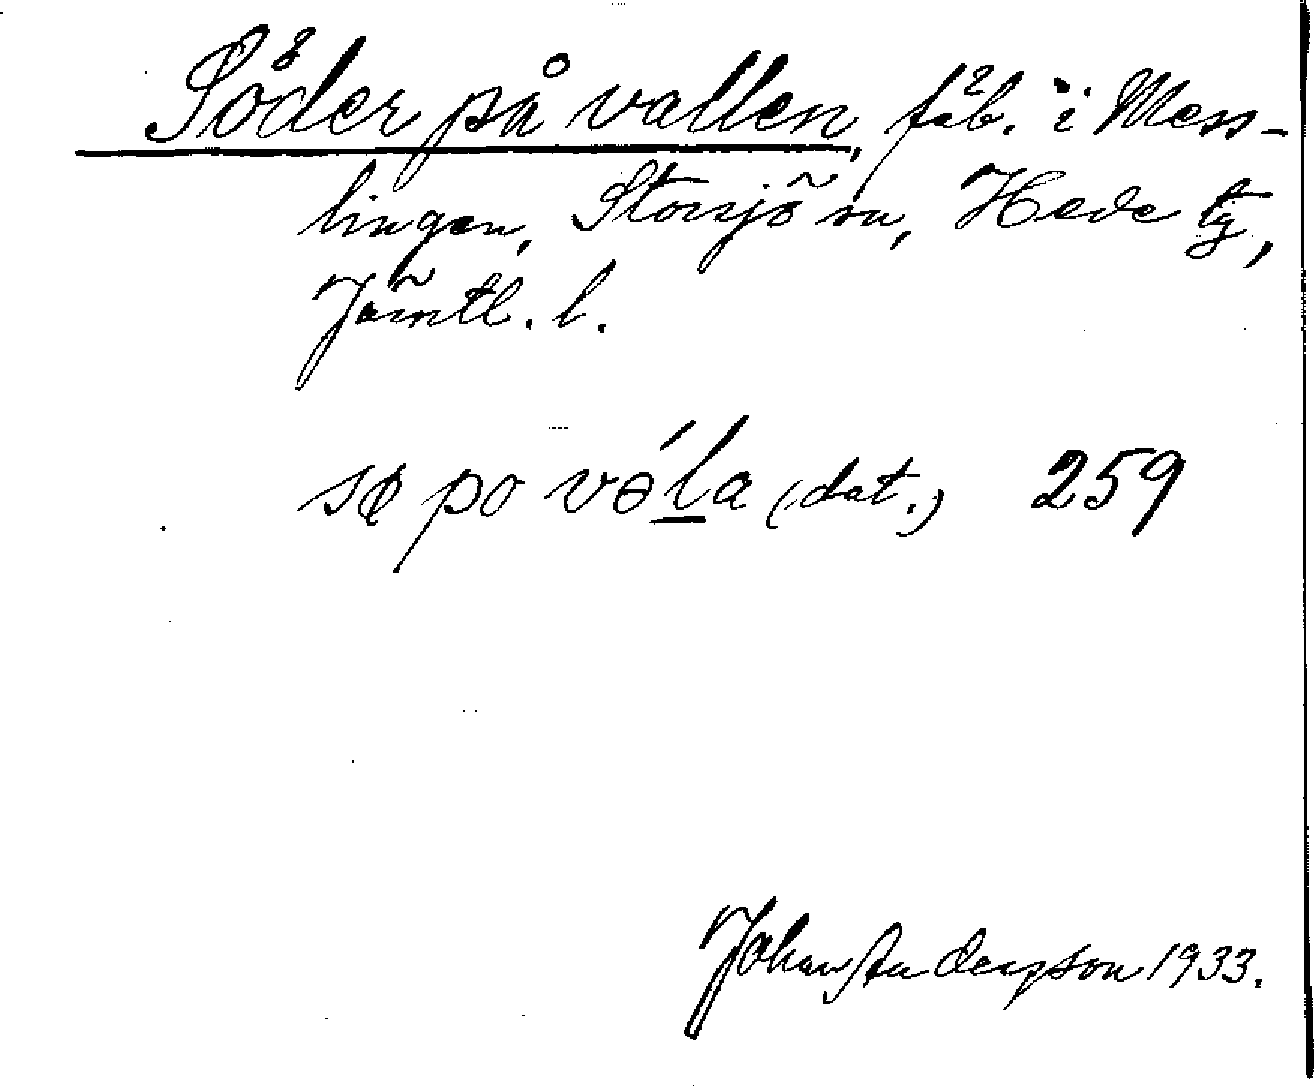 Söder på vallen, fäb. i Mess-
lingen, Storsjö sn, Hede tg,
Jämtl. l.
po vəla (dat.) 259
Johan Anderzson 1933.